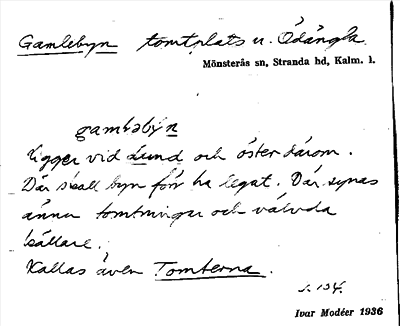 Gamlebyn tomtplats u. Ödängla.
Mönsterås sn, Stranda hd, Kalm. l.
gamləbyn
Ligger vid Lund och öster därom.
Där skall byn förr ha legat. Där synas
ännu tomtningar och välvda
källare.
Kallas även Tomterna.
s. 104.
Ivar Modéer 1936